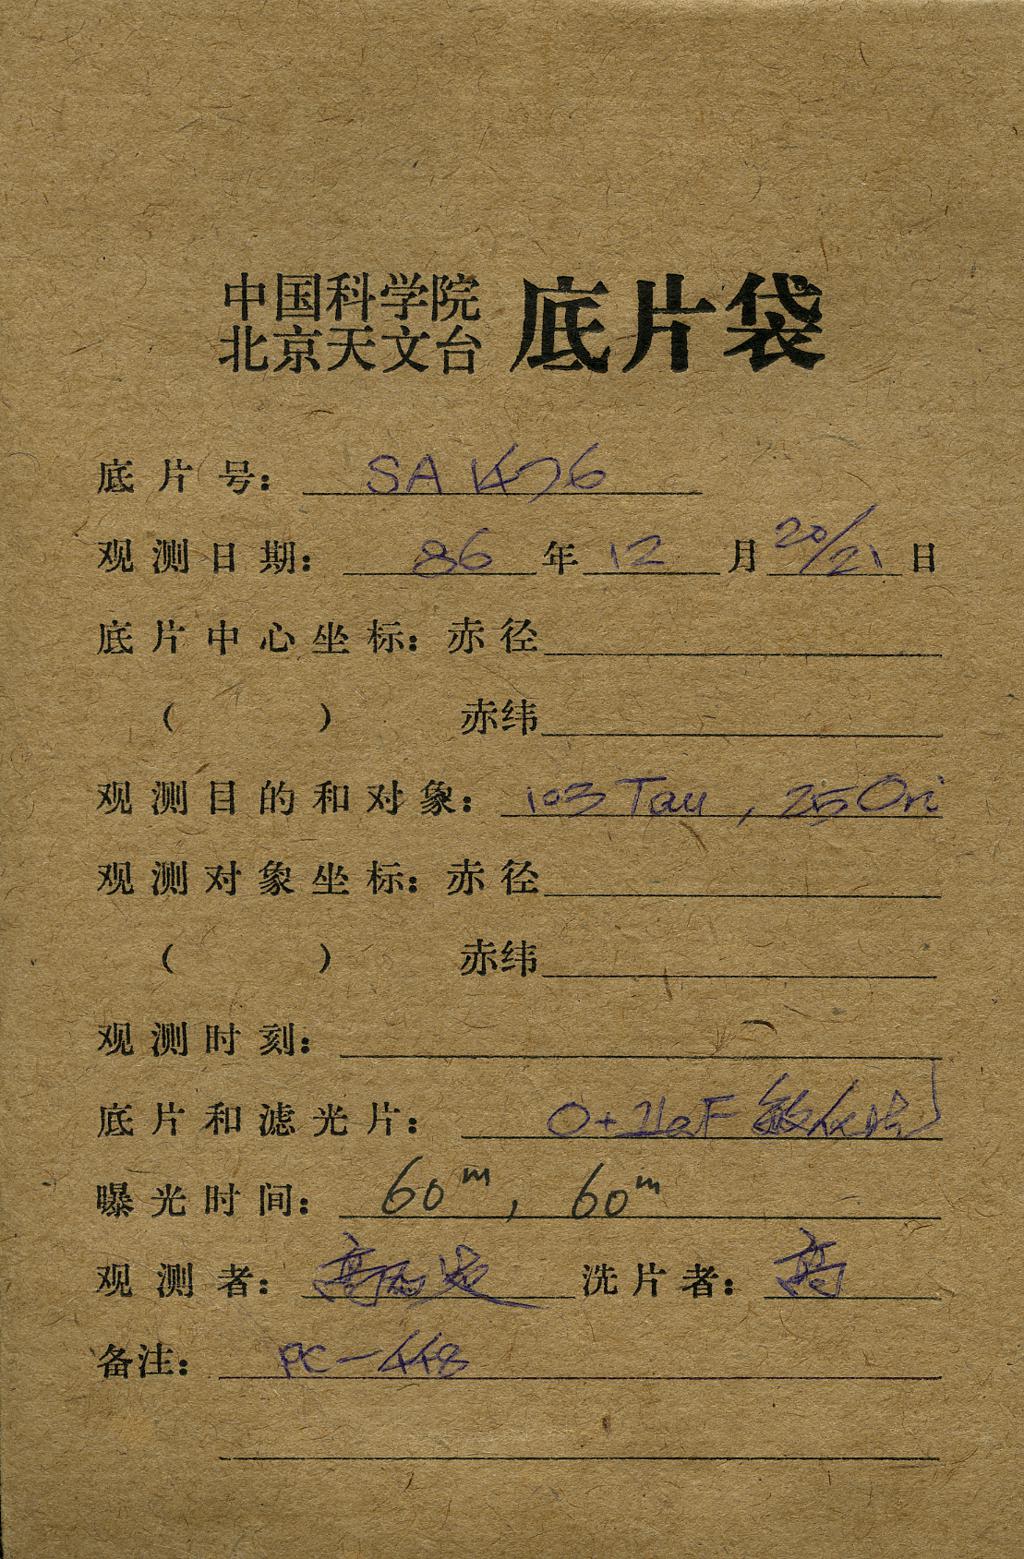 中国科学院
北京天文台
底片袋
底片号： SA 1476
观测日期： 86 年 12 月 20/21 日
底片中心坐标：赤径
（ ） 赤纬
观测目的和对象： 103 Tau , 25 Ori
观测对象坐标：赤径
（ ） 赤纬
观测时刻：
底片和滤光片： 敏化
曝光时间： 60m , 60m
观测者： 高 洗片者： 高
备注： PC-448